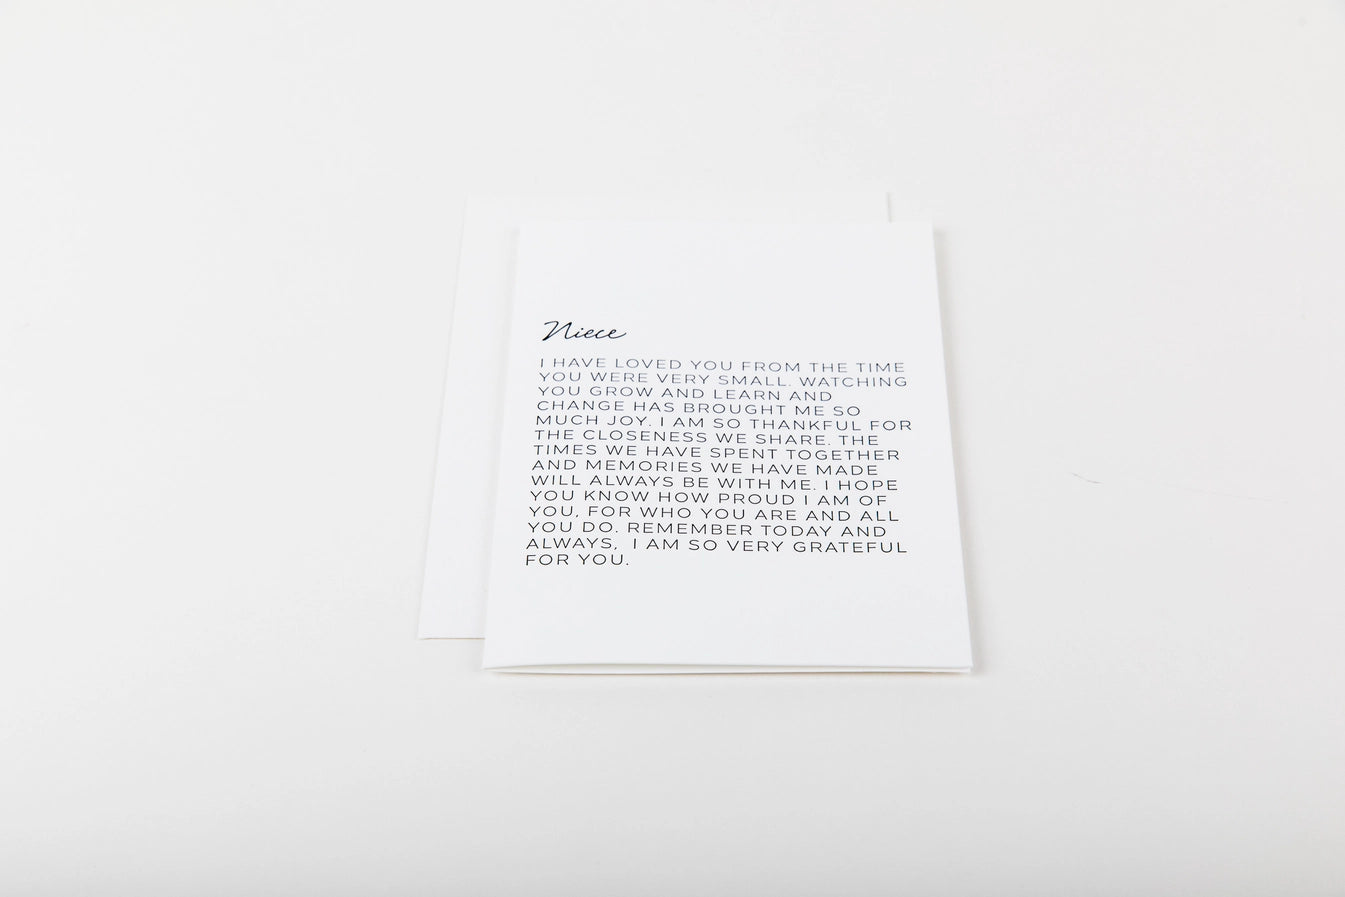 Niece
I HAVE LOVED YOU FROM THE TIME
YOU WERE VERY SMALL. WATCHING
YOU GROW AND LEARN AND
CHANGE HAS BROUGHT ME SO
MUCH JOY. I AM SO THANKFUL FOR
THE CLOSENESS WE SHARE. THE
TIMES WE HAVE SPENT TOGETHER
AND MEMORIES WE HAVE MADE
WILL ALWAYS BE WITH ME. I HOPE
YOU KNOW HOW PROUD I AM OF
YOU, FOR WHO YOU ARE AND ALL
YOU DO. REMEMBER TODAY AND
ALWAYS,  I AM SO VERY GRATEFUL
FOR YOU.